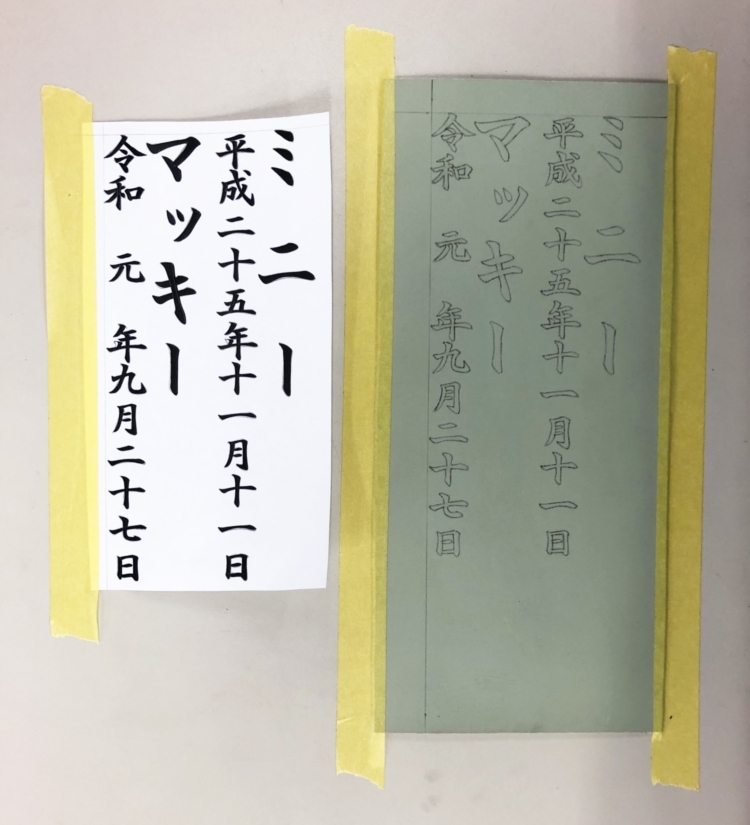 ミニー
平成二十五年十一月十一日
マッキー
令和　元　年九月二十七日
ミニー
平成二十五年十一月十一日
マッキー
令和　元　年九月二十七日